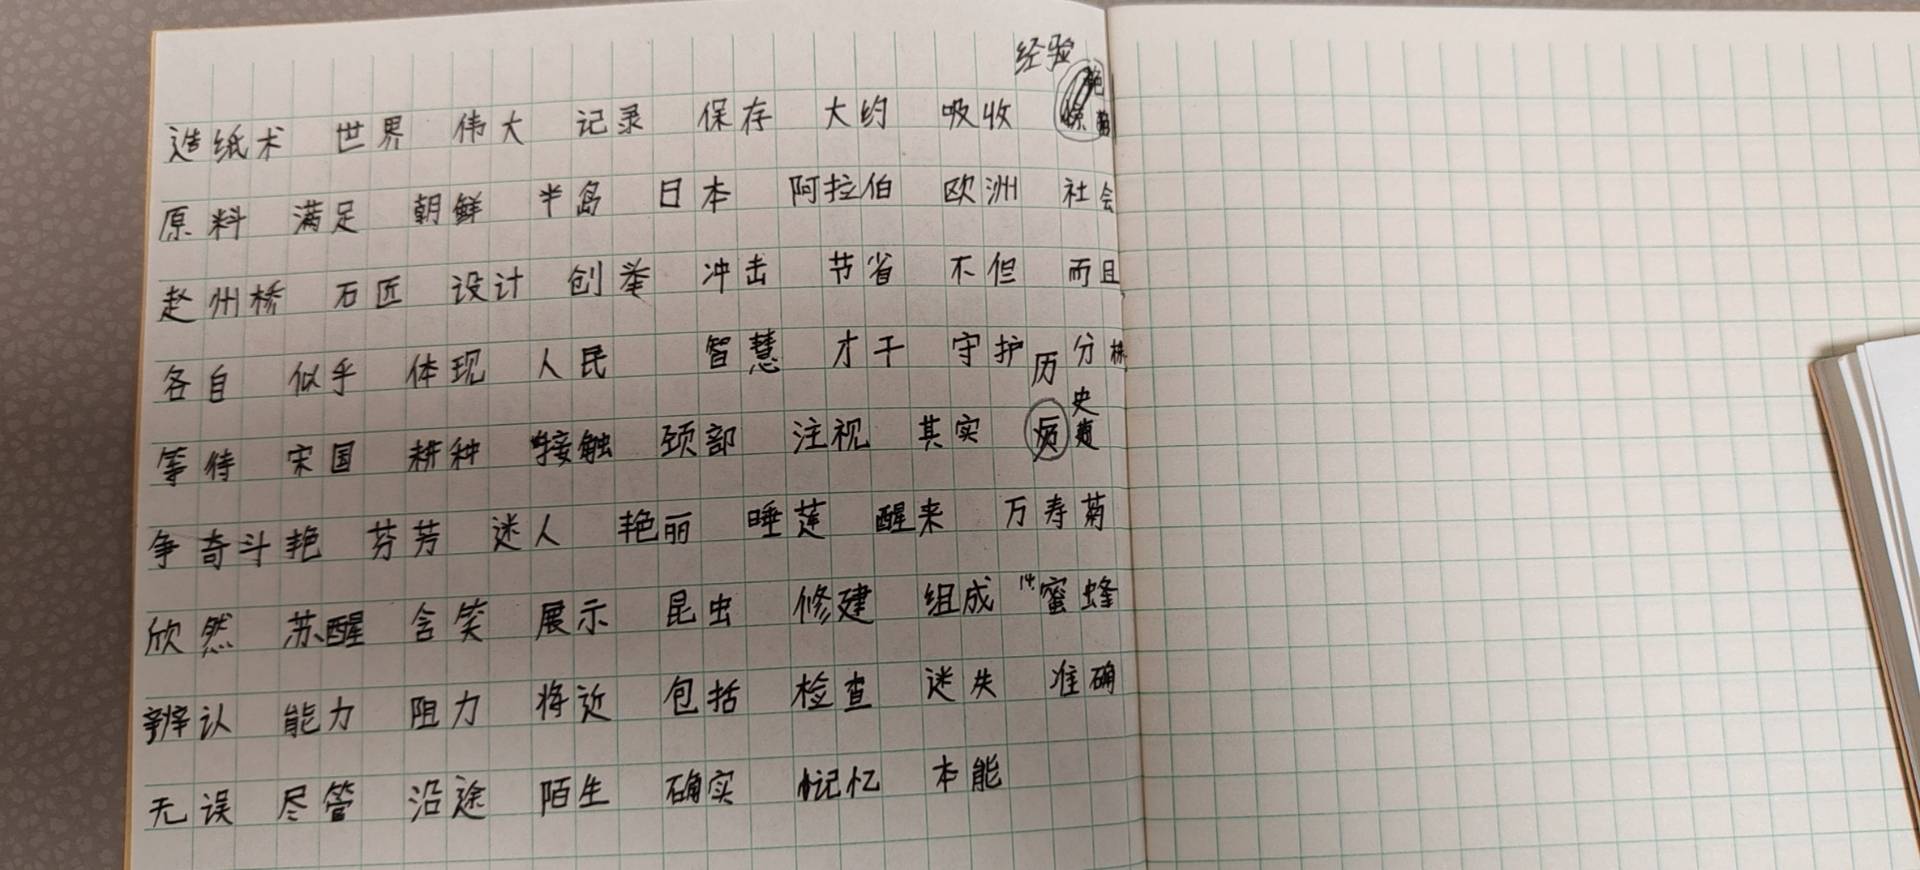 经验
造纸术 世界 伟大 记录 保存 大约 吸收
原料 满足 朝鲜 半岛 日本 阿拉伯 欧洲 社会
赵州桥 石匠 设计 创举 冲击 节省 不但 而且
各自 似乎 体现 人民 智慧 才干 守护 分
历史
等待 宋国 耕种 接触 颈部 注视 其实
争奇斗艳 芬芳 迷人 艳丽 睡莲 醒来 万寿菊
欣然 苏醒 含笑 展示 昆虫 修建 组成 14.蜜蜂
辨认 能力 阻力 将近 包括 检查 迷失 准确
无误 尽管 沿途 陌生 确实 记忆 本能